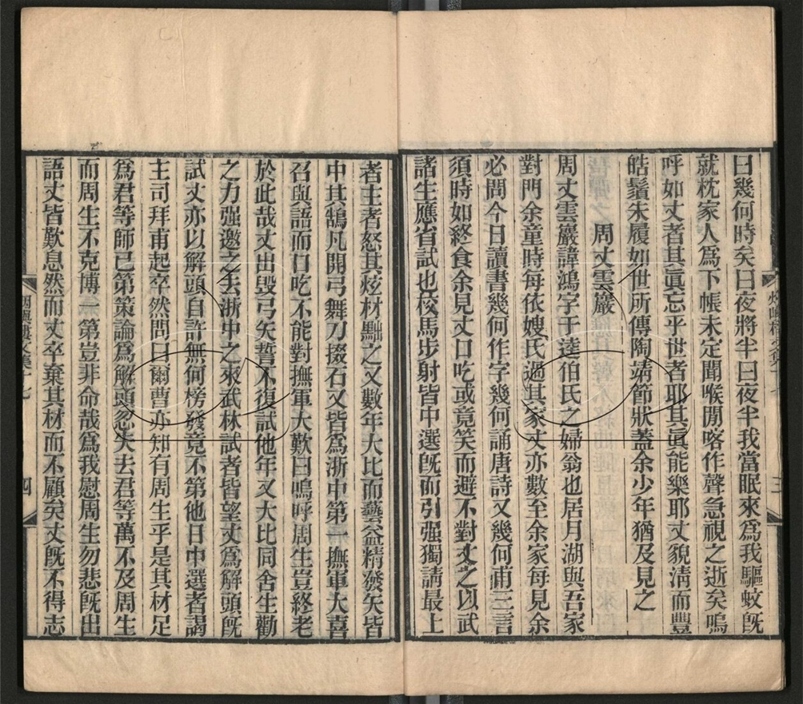 曰幾何時矣曰夜將半曰夜半我當眠來爲我驅蚊旣
就枕家人爲下帳未定聞喉閒喀作聲急視之逝矣嗚
呼如丈者其眞忘乎世者耶其眞能樂耶丈貌淸而豐
皓鬚朱履如世所傳陶靖節狀蓋余少年猶及見之
周丈雲巖
周丈雲巖諱鴻字于逵伯氏之婦翁也居月湖與吾家
對門余童時每依嫂氏過其家丈亦數至余家每見余
必問今日讀書幾何作字幾何誦唐詩又幾何甫三言
須時如終食余見丈口吃或竟笑而避不對丈之以武
諸生應省試也校馬步射皆中選旣而引强獨請最上
三
者主者怒其炫材黜之又數年大比而藝益精發矢皆
中其鵠凡開弓舞刀掇石又皆爲浙中第一撫軍大喜
召與語而口吃不能對撫軍大歎曰嗚呼周生豈終老
於此哉丈出毀弓矢誓不復試他年又大比同舍生勸
之力强邀之去浙中之來武林試者皆望丈爲解頭旣
試丈亦以解頭自許無何榜發竟不第他日中選者謁
主司拜甫起卒然問曰爾曹亦知有周生乎是其材足
爲君等師已第策論爲解頭忽失去君等萬不及周生
而周生不克博一第豈非命哉爲我慰周生勿悲旣出
語丈皆歎息然而丈卒棄其材而不顧矣丈旣不得志
烟嶼樓文集十七
四